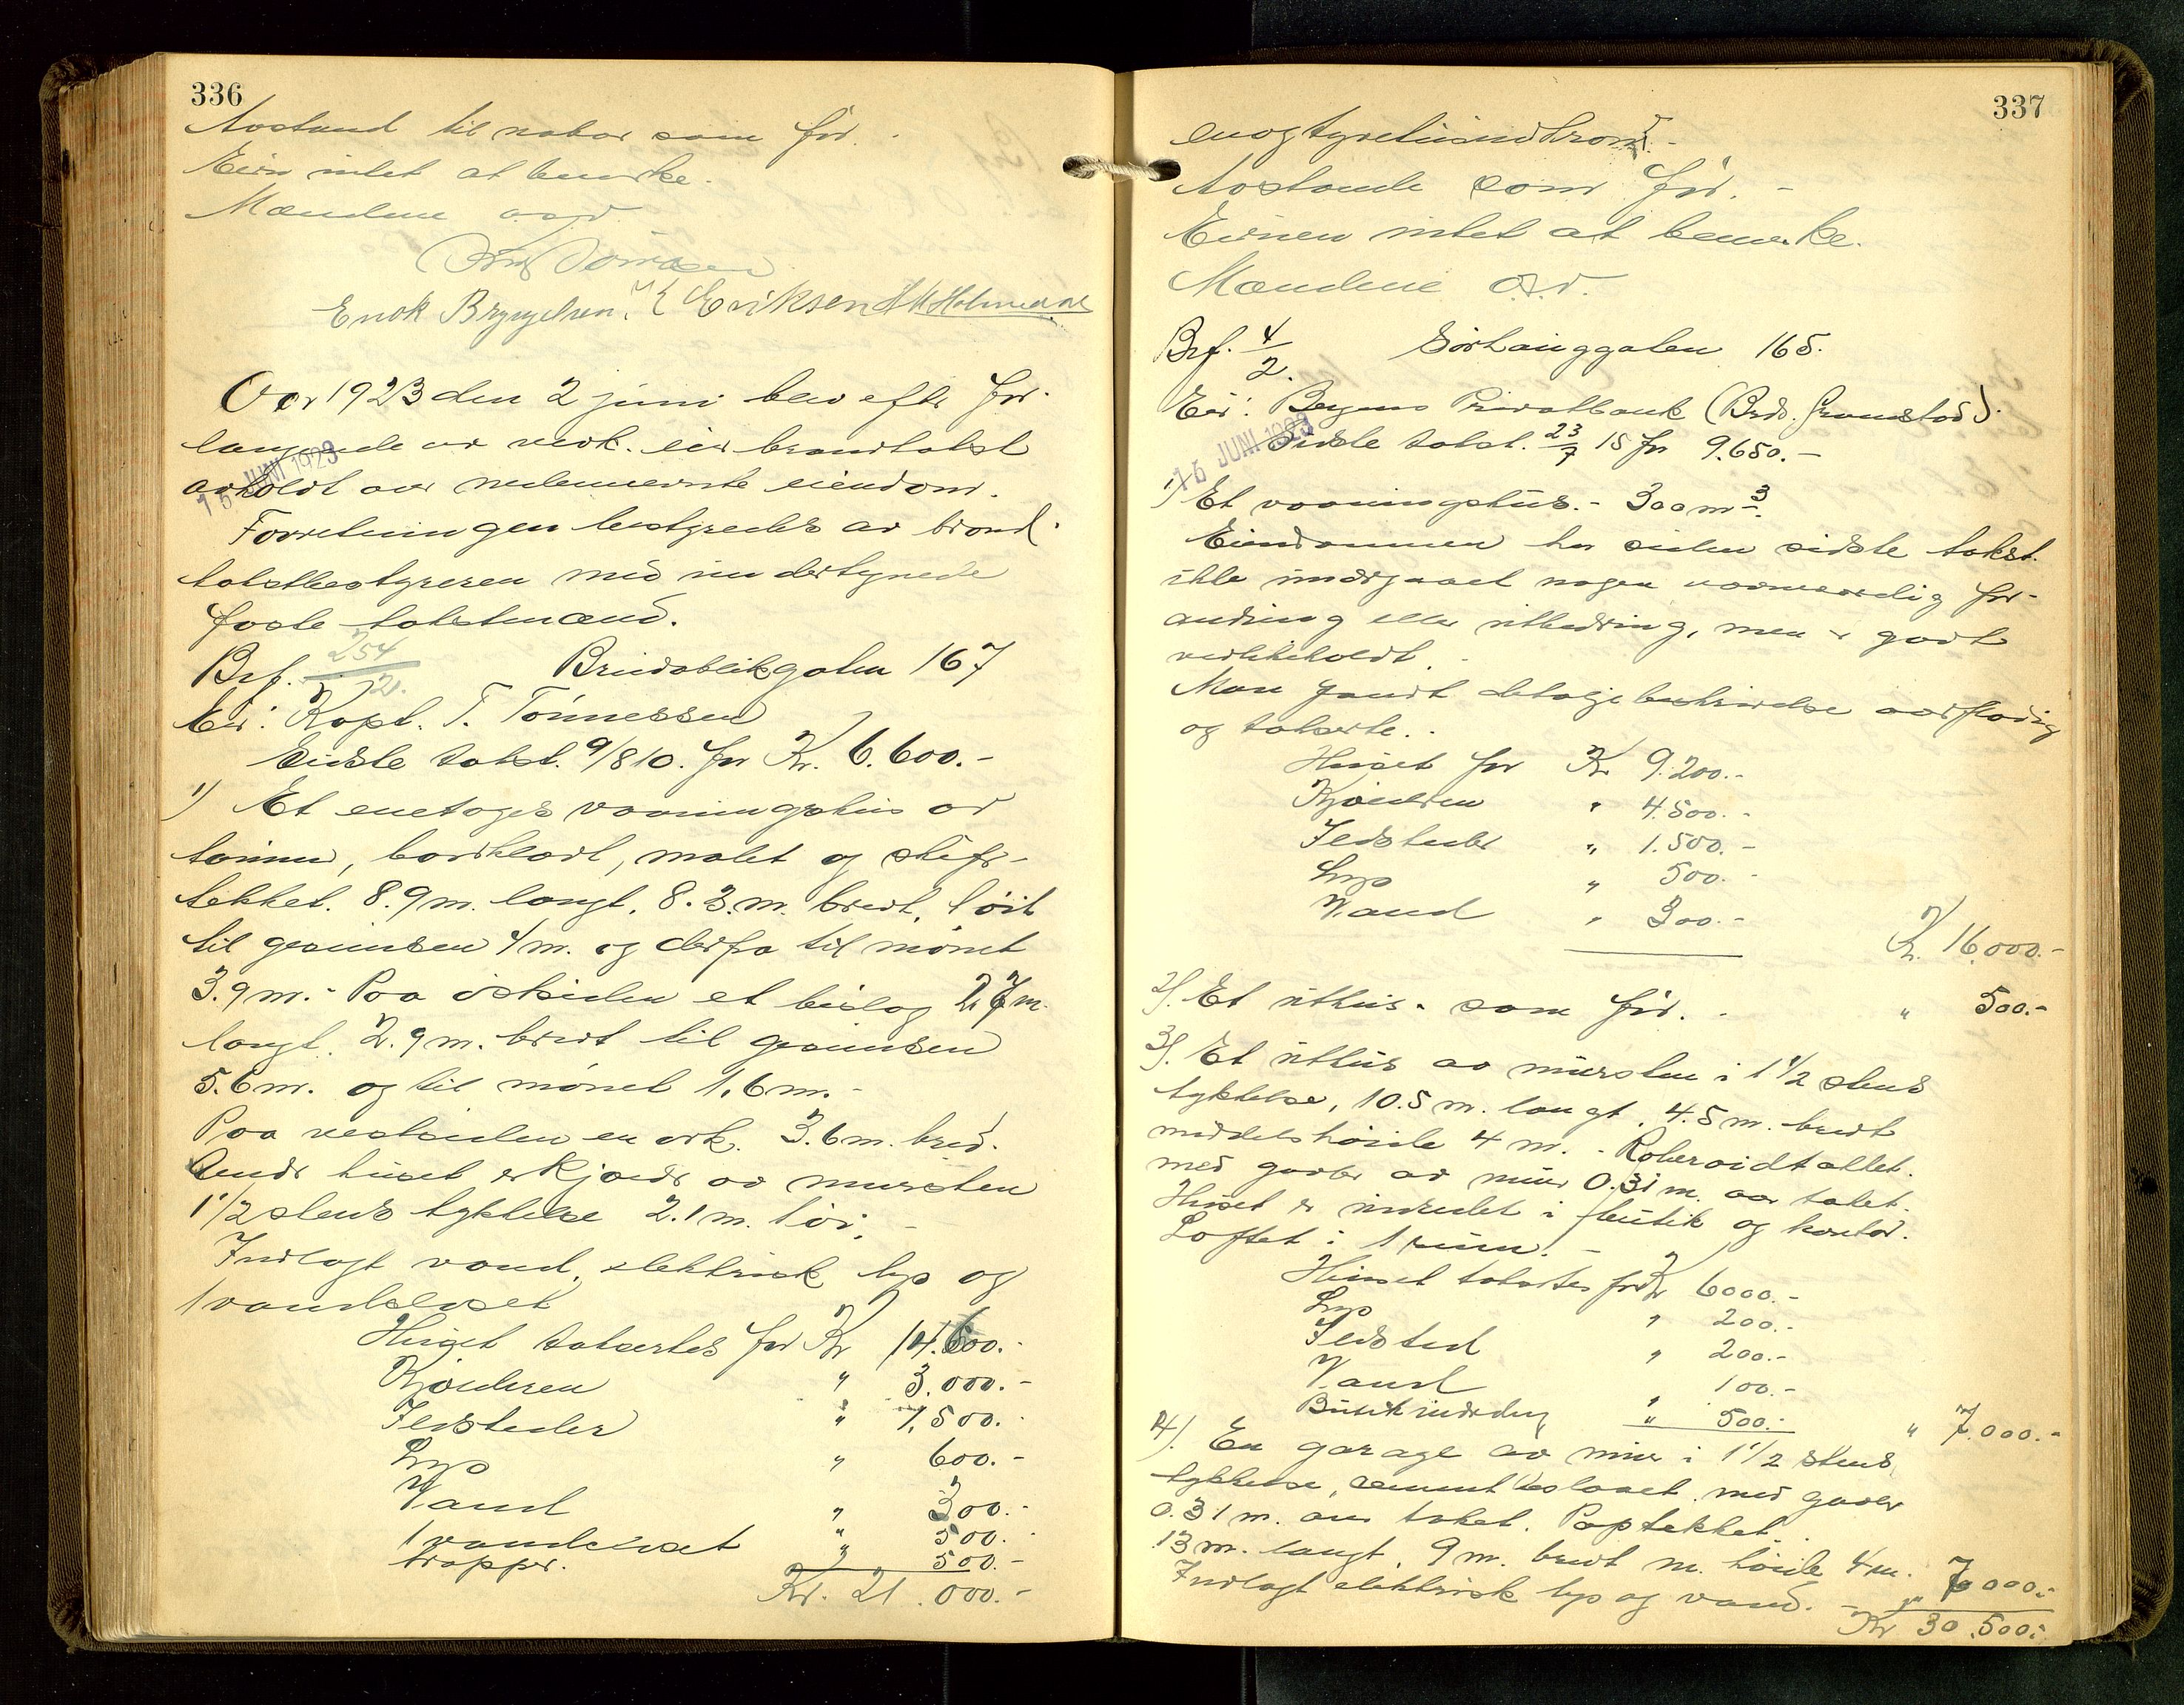 336
Avstand til nabor som før.
Eiern intet at bemerke.
Mændene
Enok Bryngelsen. Eriksen H Holmedal
Aar 1923 den 2 juni blev efter for-
langende av vedk. eier brandtakst
avholdt over nedennævnte eiendom.
15 JUNI 1923
Forretningen bestyredes av brand-
takstbestyreren med undertegnede
faste takstmænd.
Brf. 254/2. Breidablikgaten 167
Eier: Kapt. T. Tönnessen
Sidste takst. 9/8 10. for Kr. 6.600.-
1) Et enetages vaaningshus av
tømmer, bordklædt, malet og skifer-
tækket. 8.9 m. langt, 8.3 m. bredt, høit
til gesimsen 4 m. og derfra til mønet
3.9 m. - Paa østsiden et bislag 2.7 m.
langt. 2.9 m. bredt til gesimsen
5.6 m. og til mønet 1.6 m.-
Paa vestsiden en ark. 3.6 m. bred.
Under huset er kjæder av mursten
1 1/2 stens tykkelse 2.1 m. høi. -
Indlagt vand, elektrisk lys og
1 vandkloset
Huset takseres for Kr 14.600.-
Kjælderen " 3.000.-
Ildsteder " 1.500.-
Lys " 600.-
Vand " 300.-
1 vandkloset " 500.-
trapper. " 500.-
Kr. 21.000.-
337
enogtyvetusindkroner.-
Avstande som før. -
Eieren intet at bemerke.
Mændene
Brf. 4/2. Sörhauggaten 165.
Eier: Bergens Privatbank (Brdr. Grønstad).
15 JUNI 1923
Sidste takst. 23/7 15 for 9.650.-
1) Et vaaningshus. - 300 m3.
Eiendommen har siden sidste takst
ikke undergaaet nogen nævneværdig for-
andring eller utbedring, men er godt
vedlikeholdt.
Man fandt detalje beskrivelse overflødig
og takserte..
Huset for Kr 9.200.-
Kjælderen " 4.500.-
Ildsteder " 1.500.-
Lys " 500.-
Vand " 300.-
Kr. 16.000.-
2). Et uthus. som før. - " 500.-
3). Et uthus av mursten i 1 1/2 stens
tykkelse, 10.5 m. langt, 4.5 m. bredt
middelshøide 4 m. - Ruberoidtækket.
med gavler av mur 0.31 m. over taket.
Huset er innredet i butik og kontor.
Loftet i 1 rum. -
Huset takseres for Kr 6000.-
Lys " 200.-
Ildsted " 200.-
Vand " 100.-
Butikinnredning " 500.- " 7.000.-
4). En garage av mur i 1 1/2 stens
tykkelse, cement beslaaet. med gavler
0.31 m. over taket. Paptækket.
13 m. langt, 9 m. bredt m. høide 4 m.
Indlagt elektrisk lys og vand. - " 7000.-
Kr 30.500.-